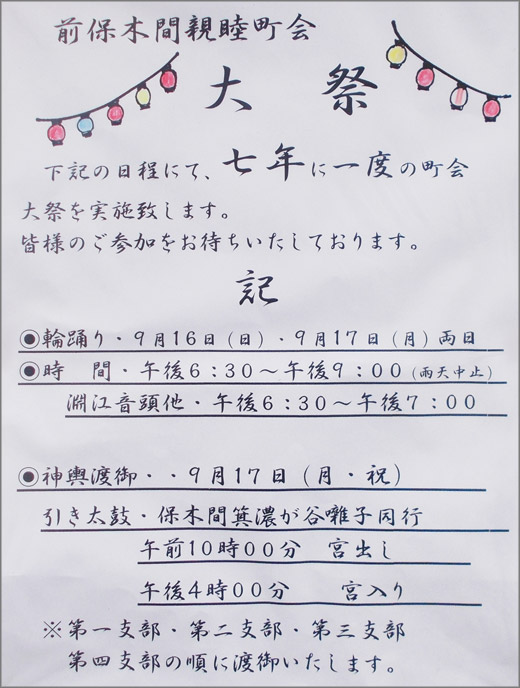 前保木間親睦町会
大　祭
下記の日程にて、七年に一度の町会
大祭を実施致します。
皆様のご参加をお待ちいたしております。
記
◉輪踊り・９月１６日（日）・９月１７日（月）両日
◉時　間・午後６：３０～午後９：００（雨天中止）
淵江音頭他・午後６：３０～午後７：００
◉神輿渡御・・９月１７日（月・祝）
引き太鼓・保木間箕濃が谷囃子同行
午前１０時００分　宮出し
午後４時００分　宮入り
※第一支部・第二支部・第三支部
第四支部の順に渡御いたします。